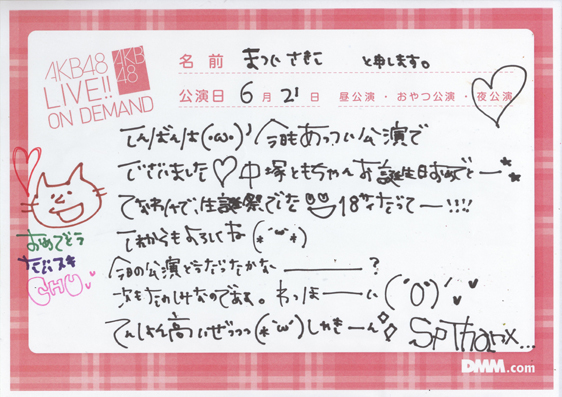 AKB48
LIVE!!
ON DEMAND
AKB
48
名前 まつい さきこ と申します。
公演日 6月21日 昼公演・おやつ公演・夜公演
こんばんは(･ω･)ﾉ 今日もあっつい公演で
ございました♡中塚ともちゃんお誕生日おめでとー
てなわけで、生誕祭でした 18才だってー!!!!
これからもよろしくね(*´ω`*)
今日の公演どうだったかな―――?
次もたのしみなのである。わっほーい(´O`)
てんしょん高いぜっっっ(*´ω`)しゃきーん
おめでとう
だいスキ
CHU
Sp Thanx...
DMM.com